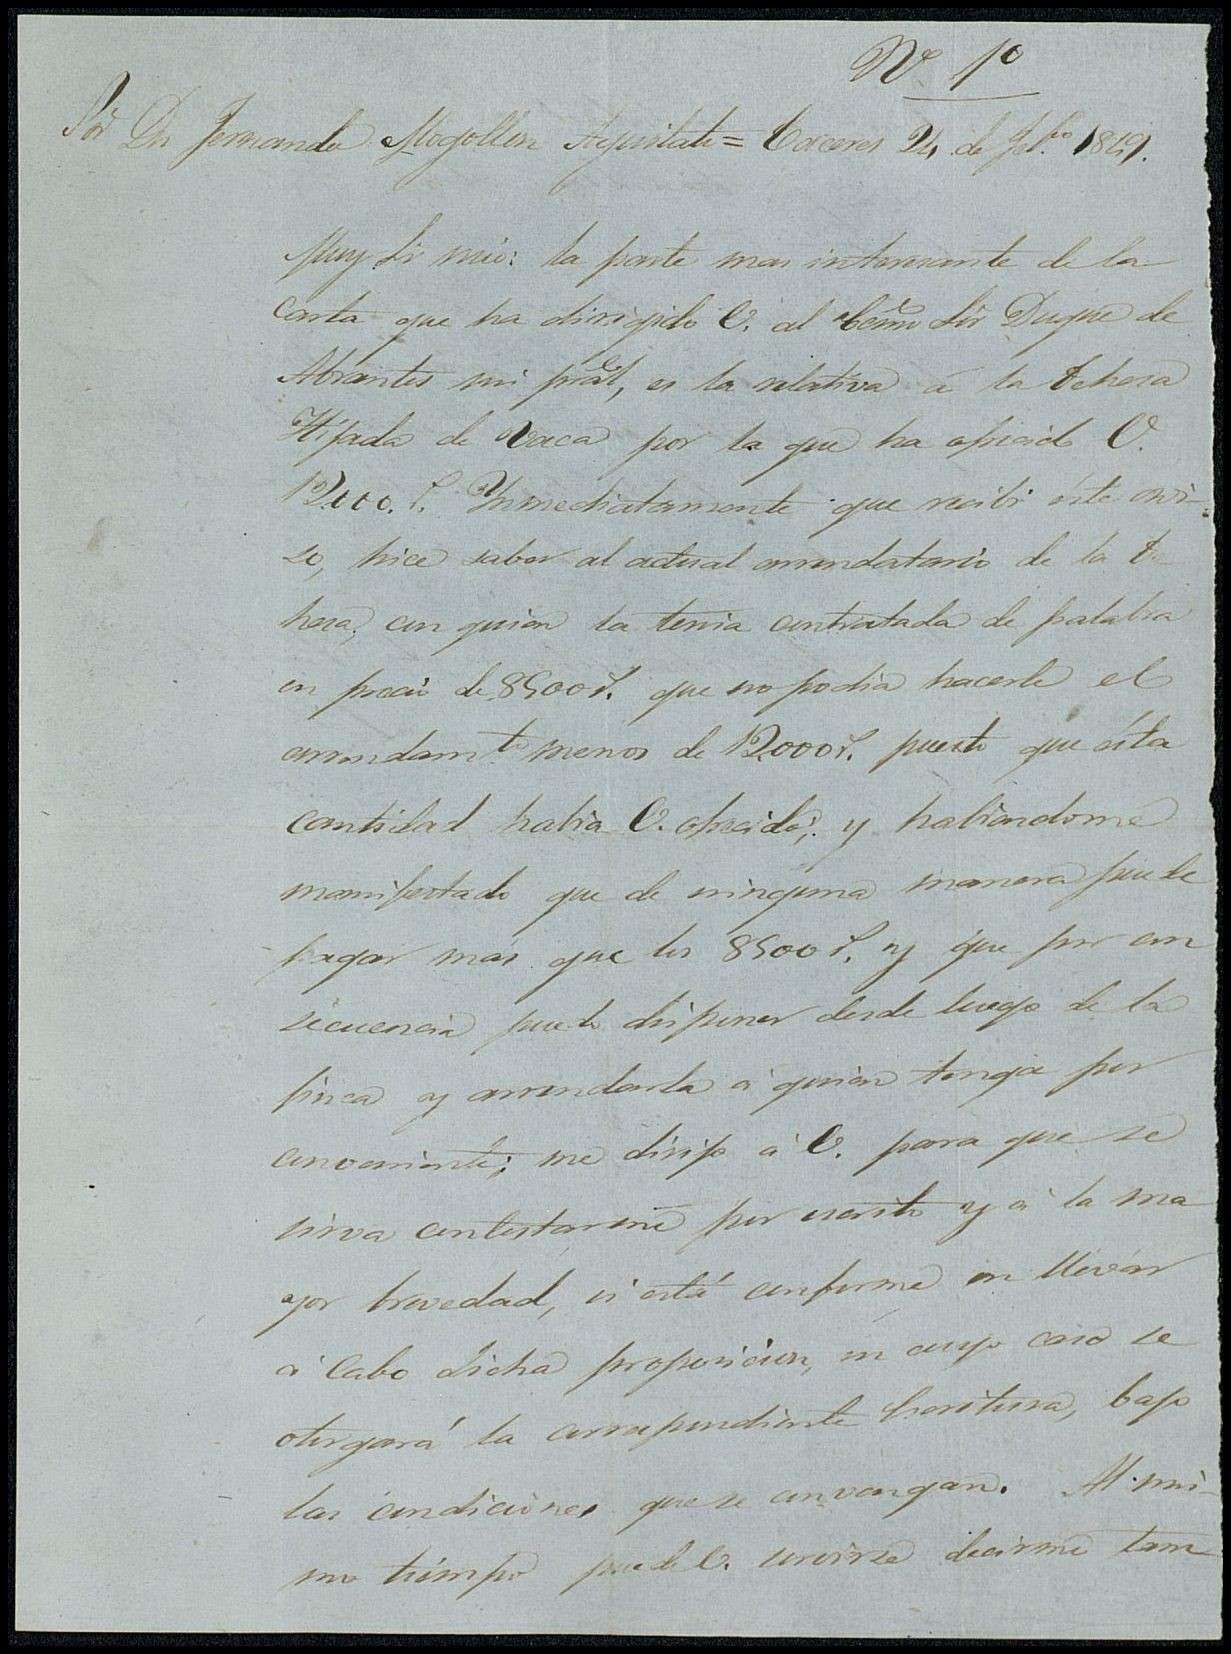 Nº 1º
Sor Dn Fernando Mogollon = Caceres 24 de Febº 1849.
Muy Sr mio: la parte mas interesante de la
carta que ha dirigido V. al Excmo Sór Duque de
Abrantes mi pral, es la relativa á la dehesa
Hijada de Vaca por la que ha ofrecido V.
12000. r. Inmediatamente que recibi éste avi-
so, hice saber al actual arrendatario de la de
hesa, con quien la tenia contratada de palabra
en precio de 8500 r. que no podia hacerle el
arrendamto menos de 12000 r. puesto que ésta
cantidad habia V. ofrecido; y habiendome
manifestado que de ninguna manera puede
pagar más que los 8500 r. y que por con
secuencia puedo disponer desde luego de la
finca y arrendarla á quien tenga por
conveniente; me dirijo á V. para que se
sirva contestarme por escrito y á la ma
yor brevedad, si está conforme en llevar
á cabo dicha proposicion, en cuyo caso se
otorgará la correspondiente Escritura, bajo
las condiciones que se convengan. Al mis-
mo tiempo puede V. servirse decirme tam